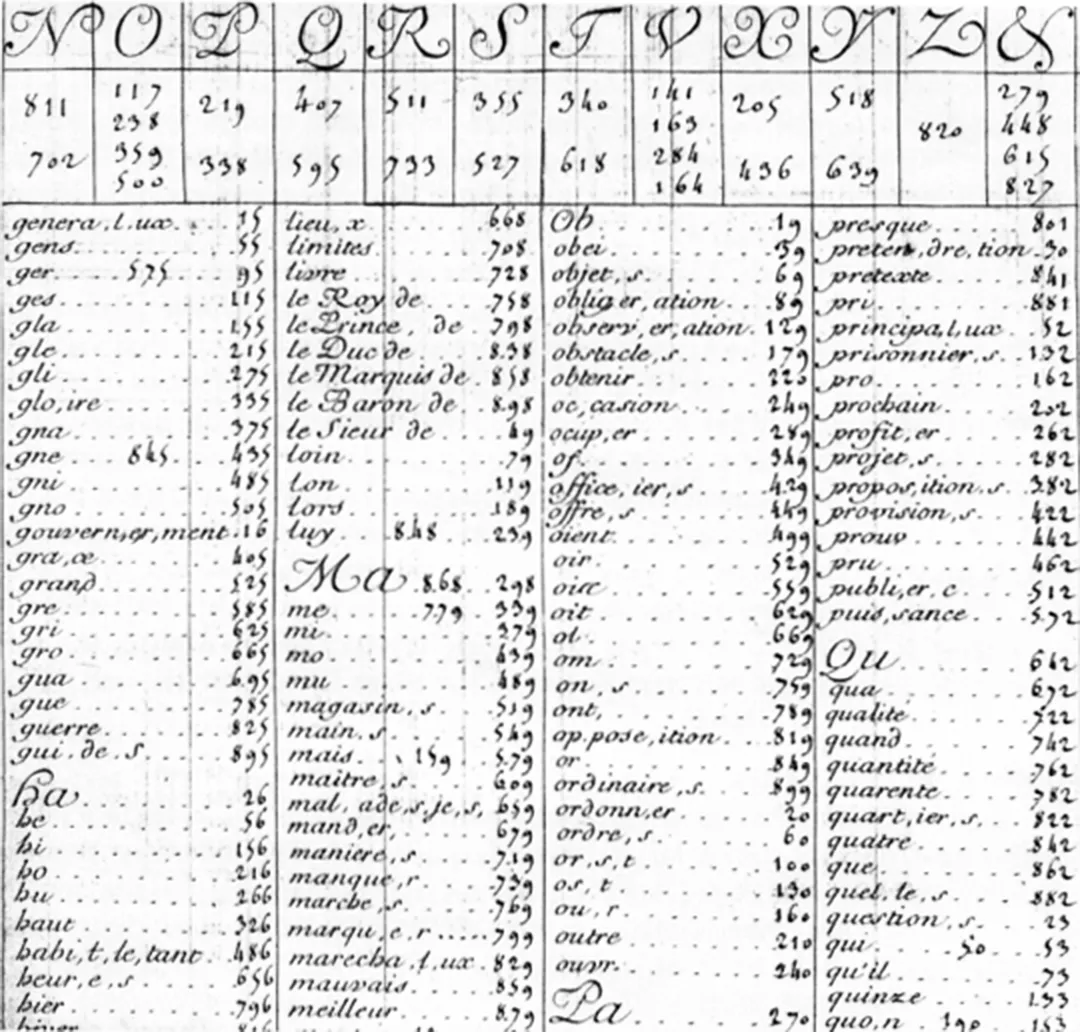 N O P Q R S T V X Y Z &
811 117 219 407 511 355 340 141 205 518 279
238 163 820 448
702 359 338 595 733 527 618 284 436 639 615
500 164 827
genera,l.ux 15
gens 55
ger 575 95
ges 115
gla 155
gle 215
gli 275
glo,ire 335
gna 375
gne 845 435
gni 485
gno 505
gouvern,er,ment 16
gra,ce 405
grand 525
gre 585
gri 625
gro 665
gua 695
gue 785
guerre 825
gui.de.s 895
ha 26
he 56
hi 156
ho 216
hu 266
haut 326
habi,t,le,tant 486
heur,e,s 656
hier 796
hiver 816
lieu,x 668
limites 708
livre 728
le Roy de 758
le Prince, de 798
le Duc de 838
le Marquis de 858
le Baron de 898
le Sieur de 49
loin 79
lon 119
lors 189
luy 848 239
Ma 868 298
me 779 339
mi 379
mo 439
mu 489
magasin,s 519
main.s 549
mais 159 579
maitre,s 609
mal,ade,s,je,s, 659
mand,er, 679
maniere,s 719
manque,r 739
marche,s 769
marqu,e,r 799
marecha,l,ux 829
mauvais 859
meilleur 879
Ob 19
obei 39
objet,s 69
oblig,er,ation 89
observ,er,ation 129
obstacle,s 179
obtenir 220
oc,casion 249
ocup,er 289
of 349
office,ier,s 429
offre,s 449
oient 499
oir 529
oise 559
oit 629
ol 669
om 729
on,s 759
ont, 789
op.pose,ition 819
or 849
ordinaire,s 899
ordonn,er 20
ordre,s 60
or,s,t 100
os,t 130
ou,r 160
outre 210
ouvr 240
Pa 270
presque 801
preten,dre,tion 30
pretexte 841
pri 881
principa,l,ux 52
prisonnier,s 132
pro 162
prochain 202
profit,er 262
projet,s 282
propos,ition.s 382
provision,s 422
prouv 442
pru 462
publi,er,c 512
puis,sance 572
Qu 642
qua 672
qualité 722
quand 742
quantité 762
quarente 782
quart,ier,s 822
quatre 842
que 862
quel,le,s 882
question,s 23
qui 50 53
qu'il 73
quinze 133
quo,n 190 153